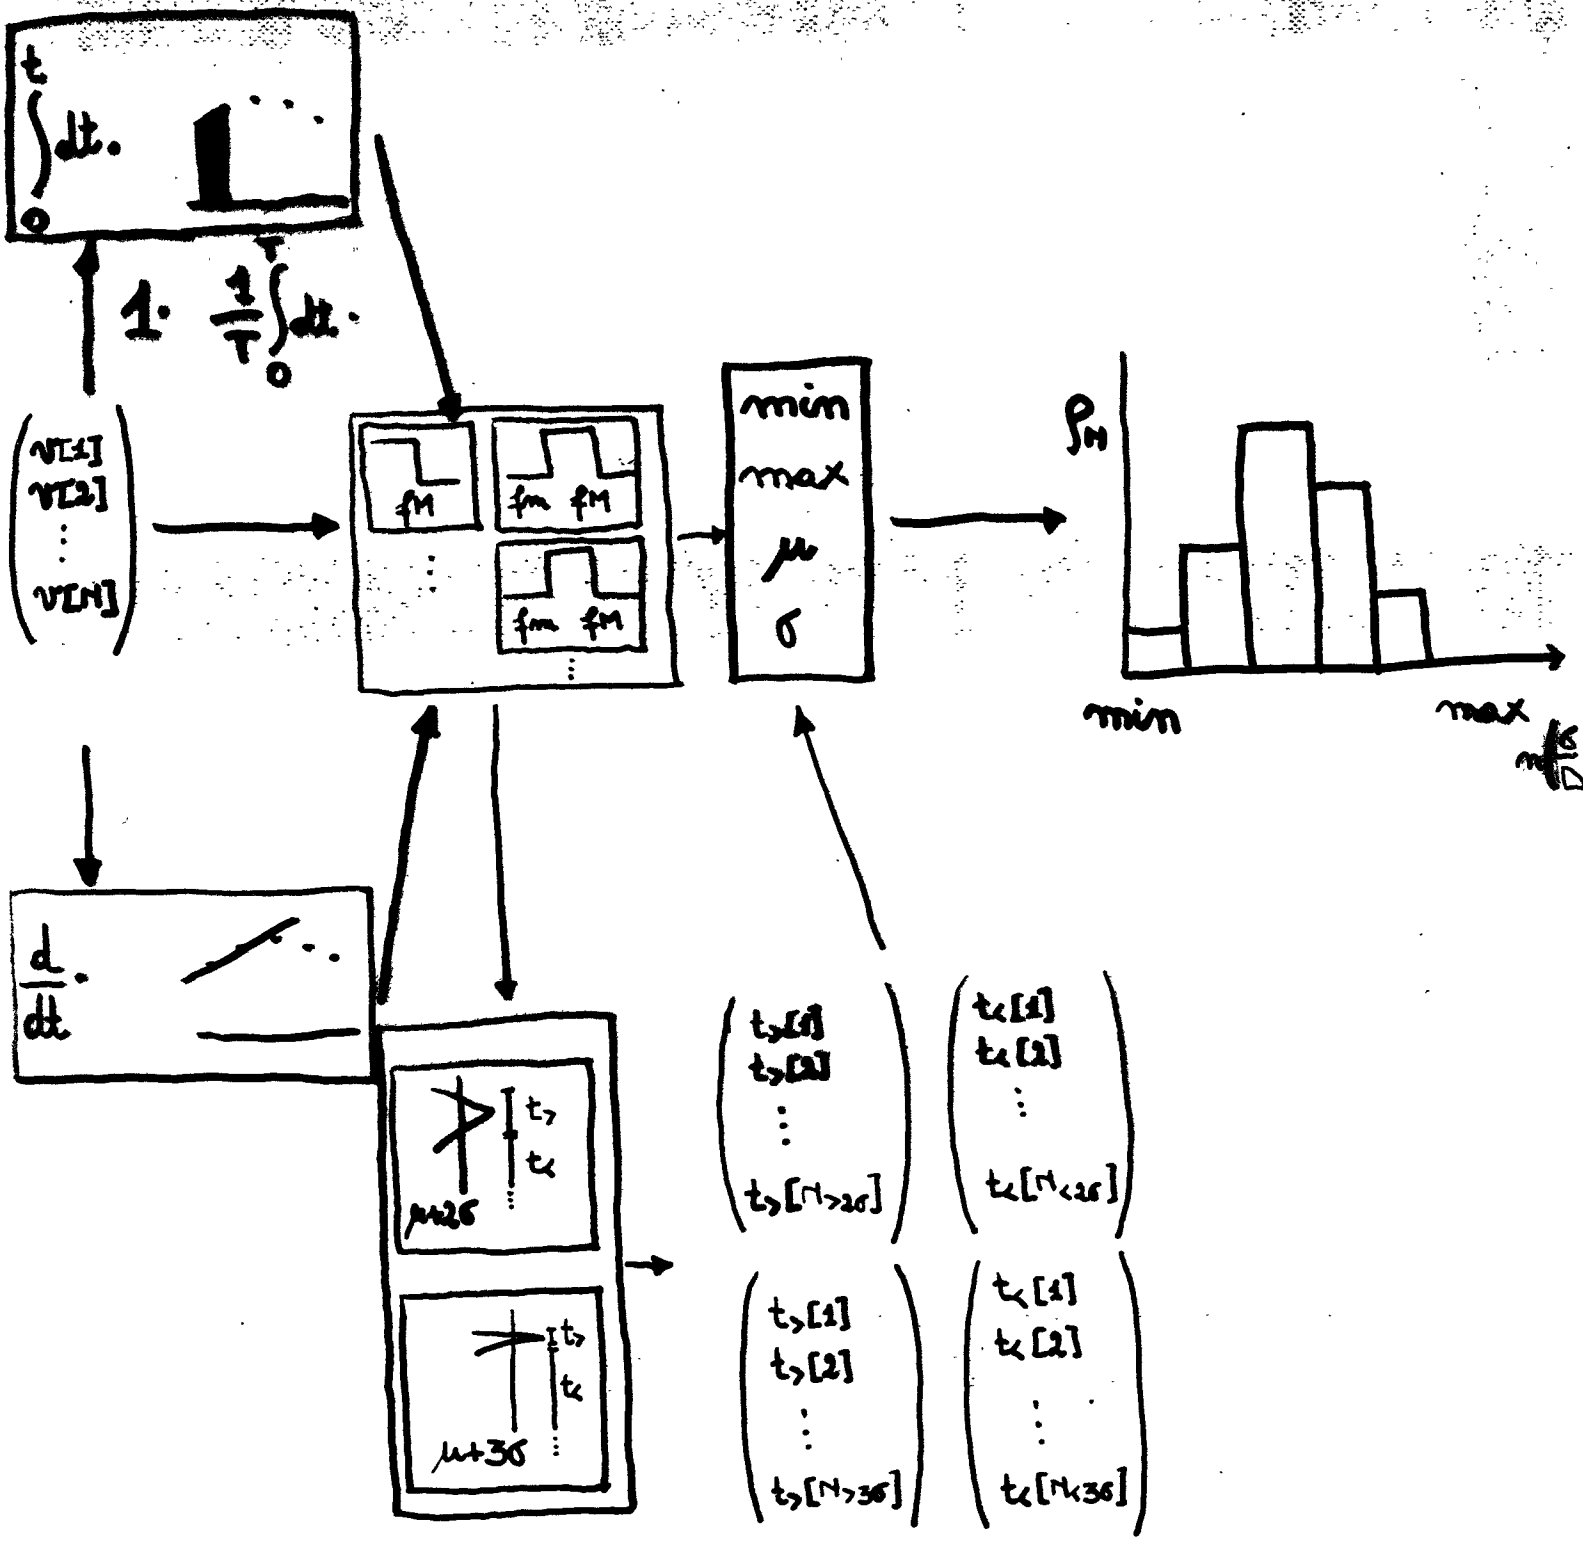 t
∫ dt.
0
1. 1/T ∫ dt.
T
0
v[1]
v[2]
⋮
v[N]
fM
fm fM
⋮
fm fM
⋮
min
max
μ
σ
ρN
min max
d/dt .
t> 
t<
⋮
μ+2σ
t>
t<
⋮
μ+3σ
t>[1]
t>[2]
⋮
t>[N>2σ]
t<[1]
t<[2]
⋮
t<[N<2σ]
t>[1]
t>[2]
⋮
t>[N>3σ]
t<[1]
t<[2]
⋮
t<[N<3σ]